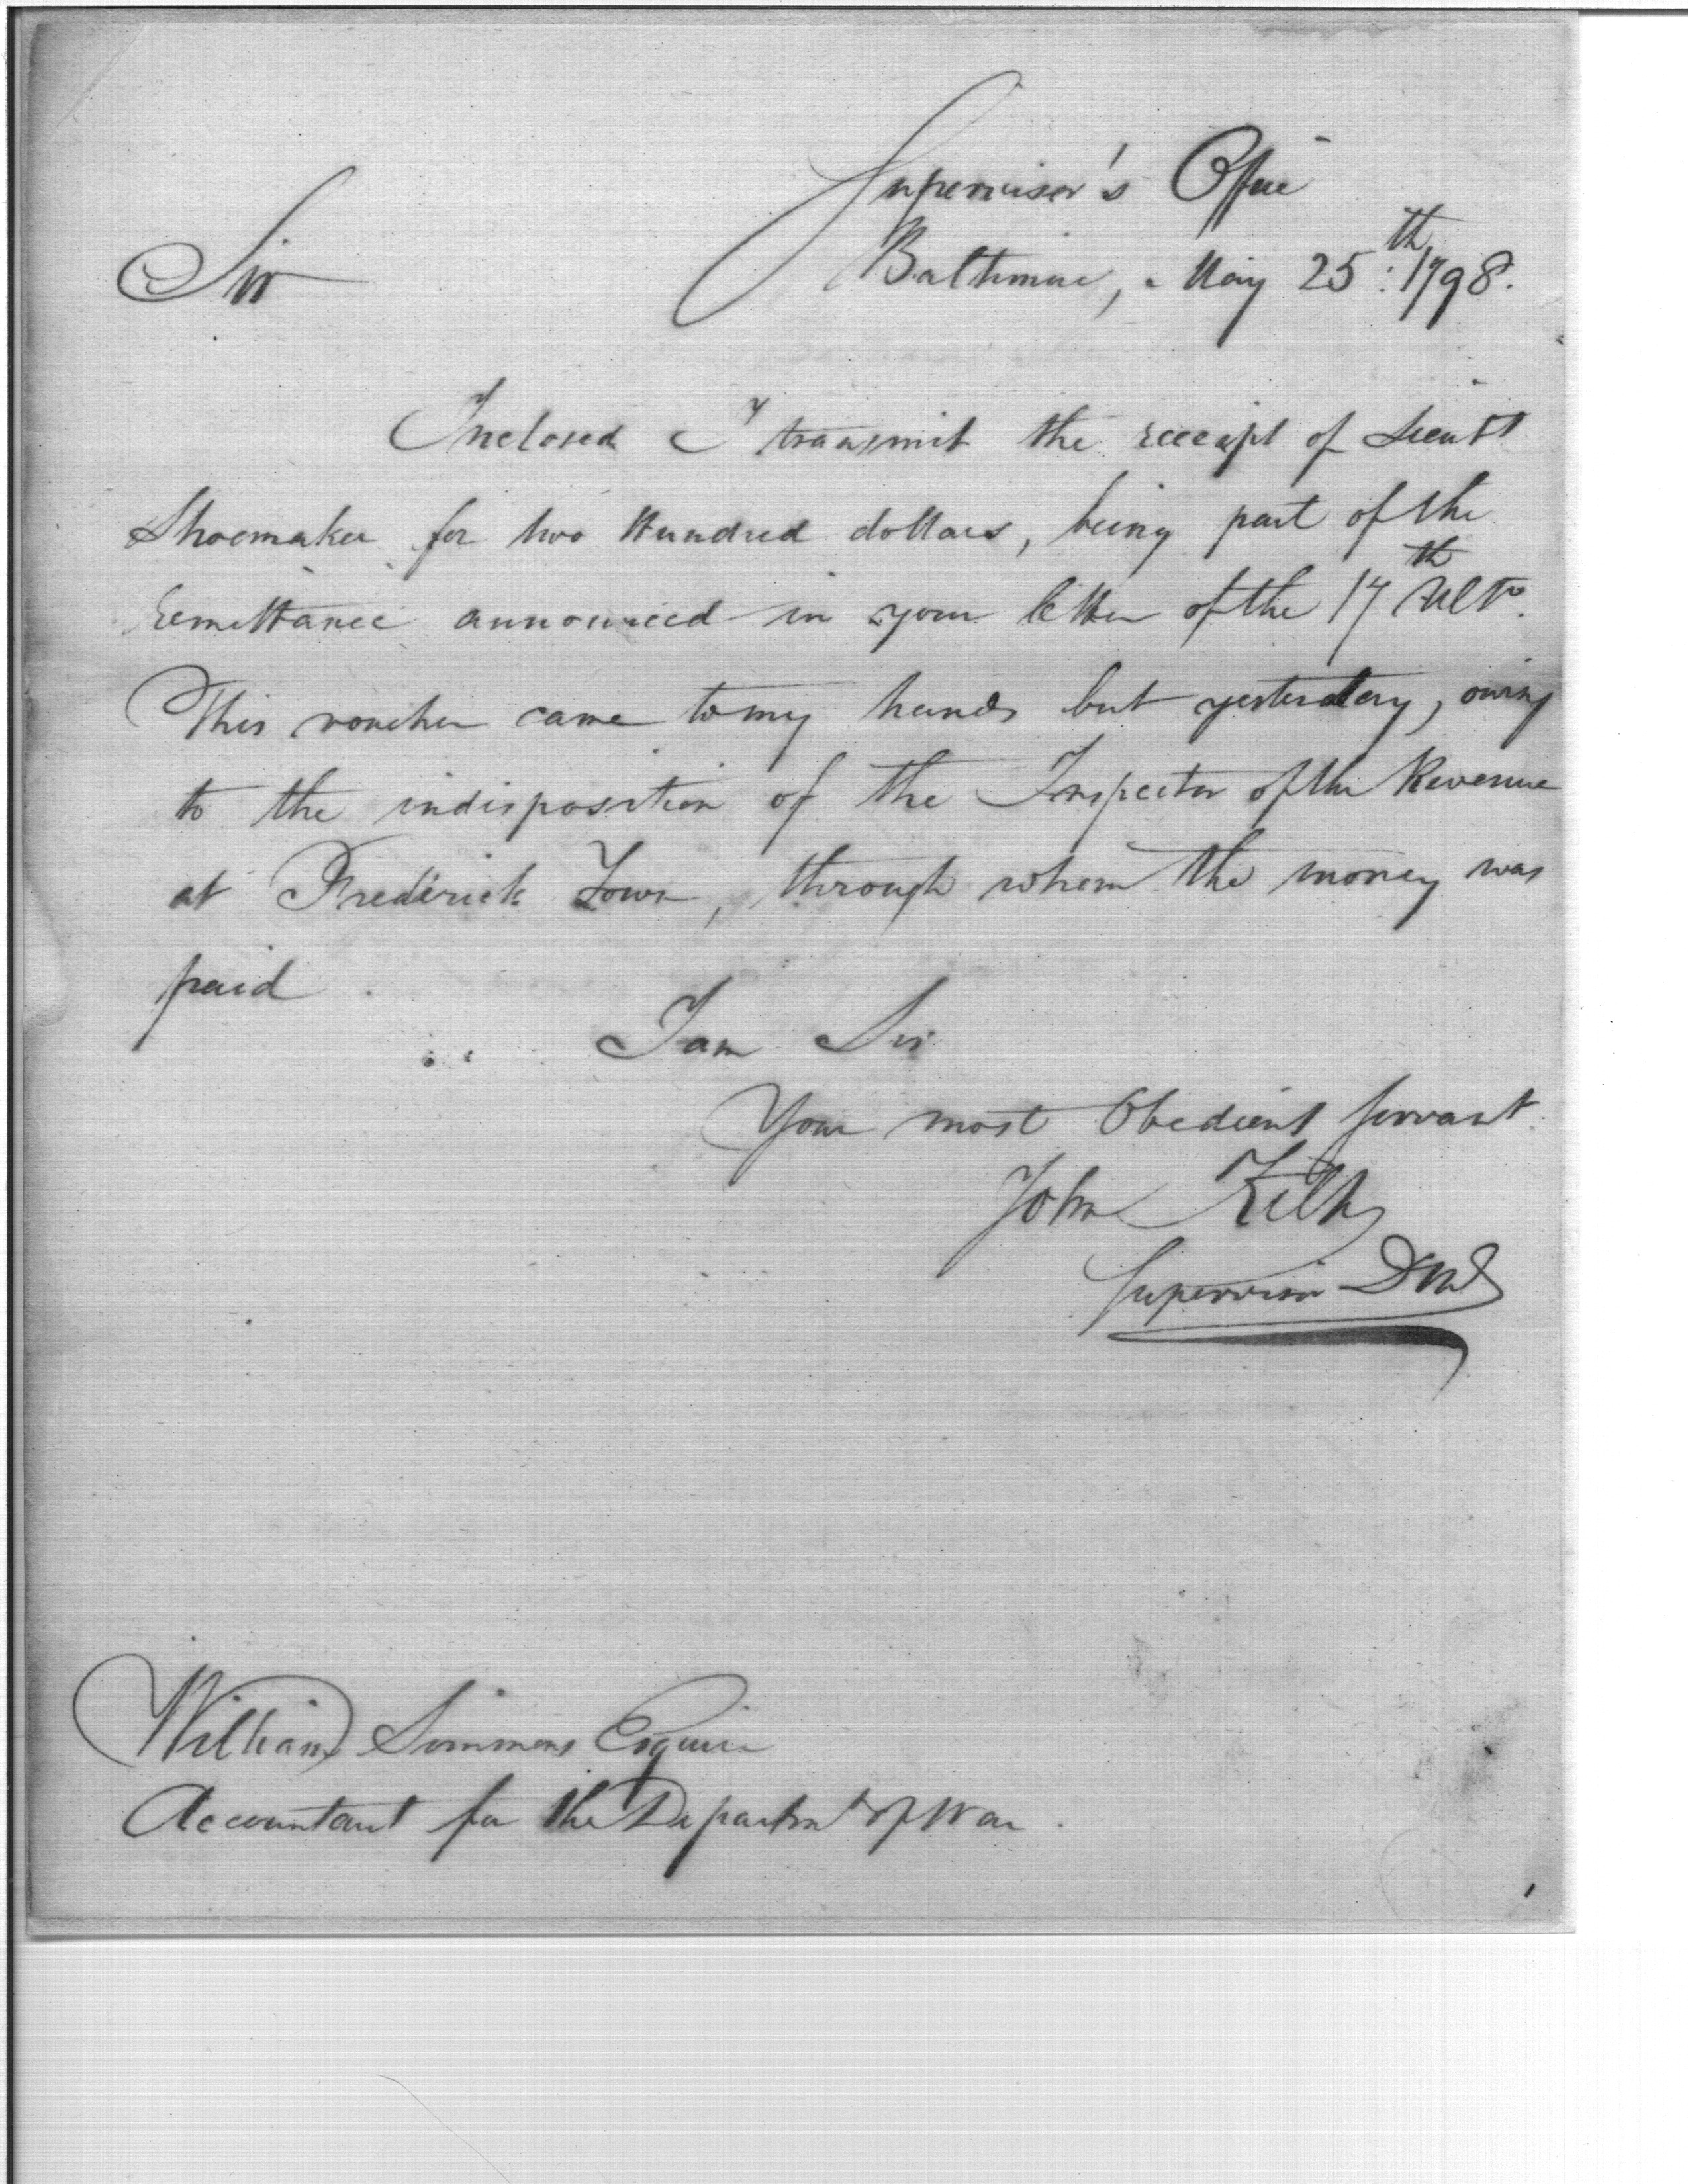 Supervisor's Office
Baltimore, May 25th: 1798.
Sir
Inclosed I transmit the receipt of Lieutt
Shoemaker for two Hundred dollars, being part of the
remittance announced in your letter of the 17th Ulto.
This voucher came to my hands but yesterday, owing
to the indisposition of the Inspector of the Revenue
at Frederick Town, through whom the money was
paid.
I am Sir
Your most Obedient servant.
John Kilty
Supervisor DMd
William Simmons Esquire
Accountant for the Departmt of War.